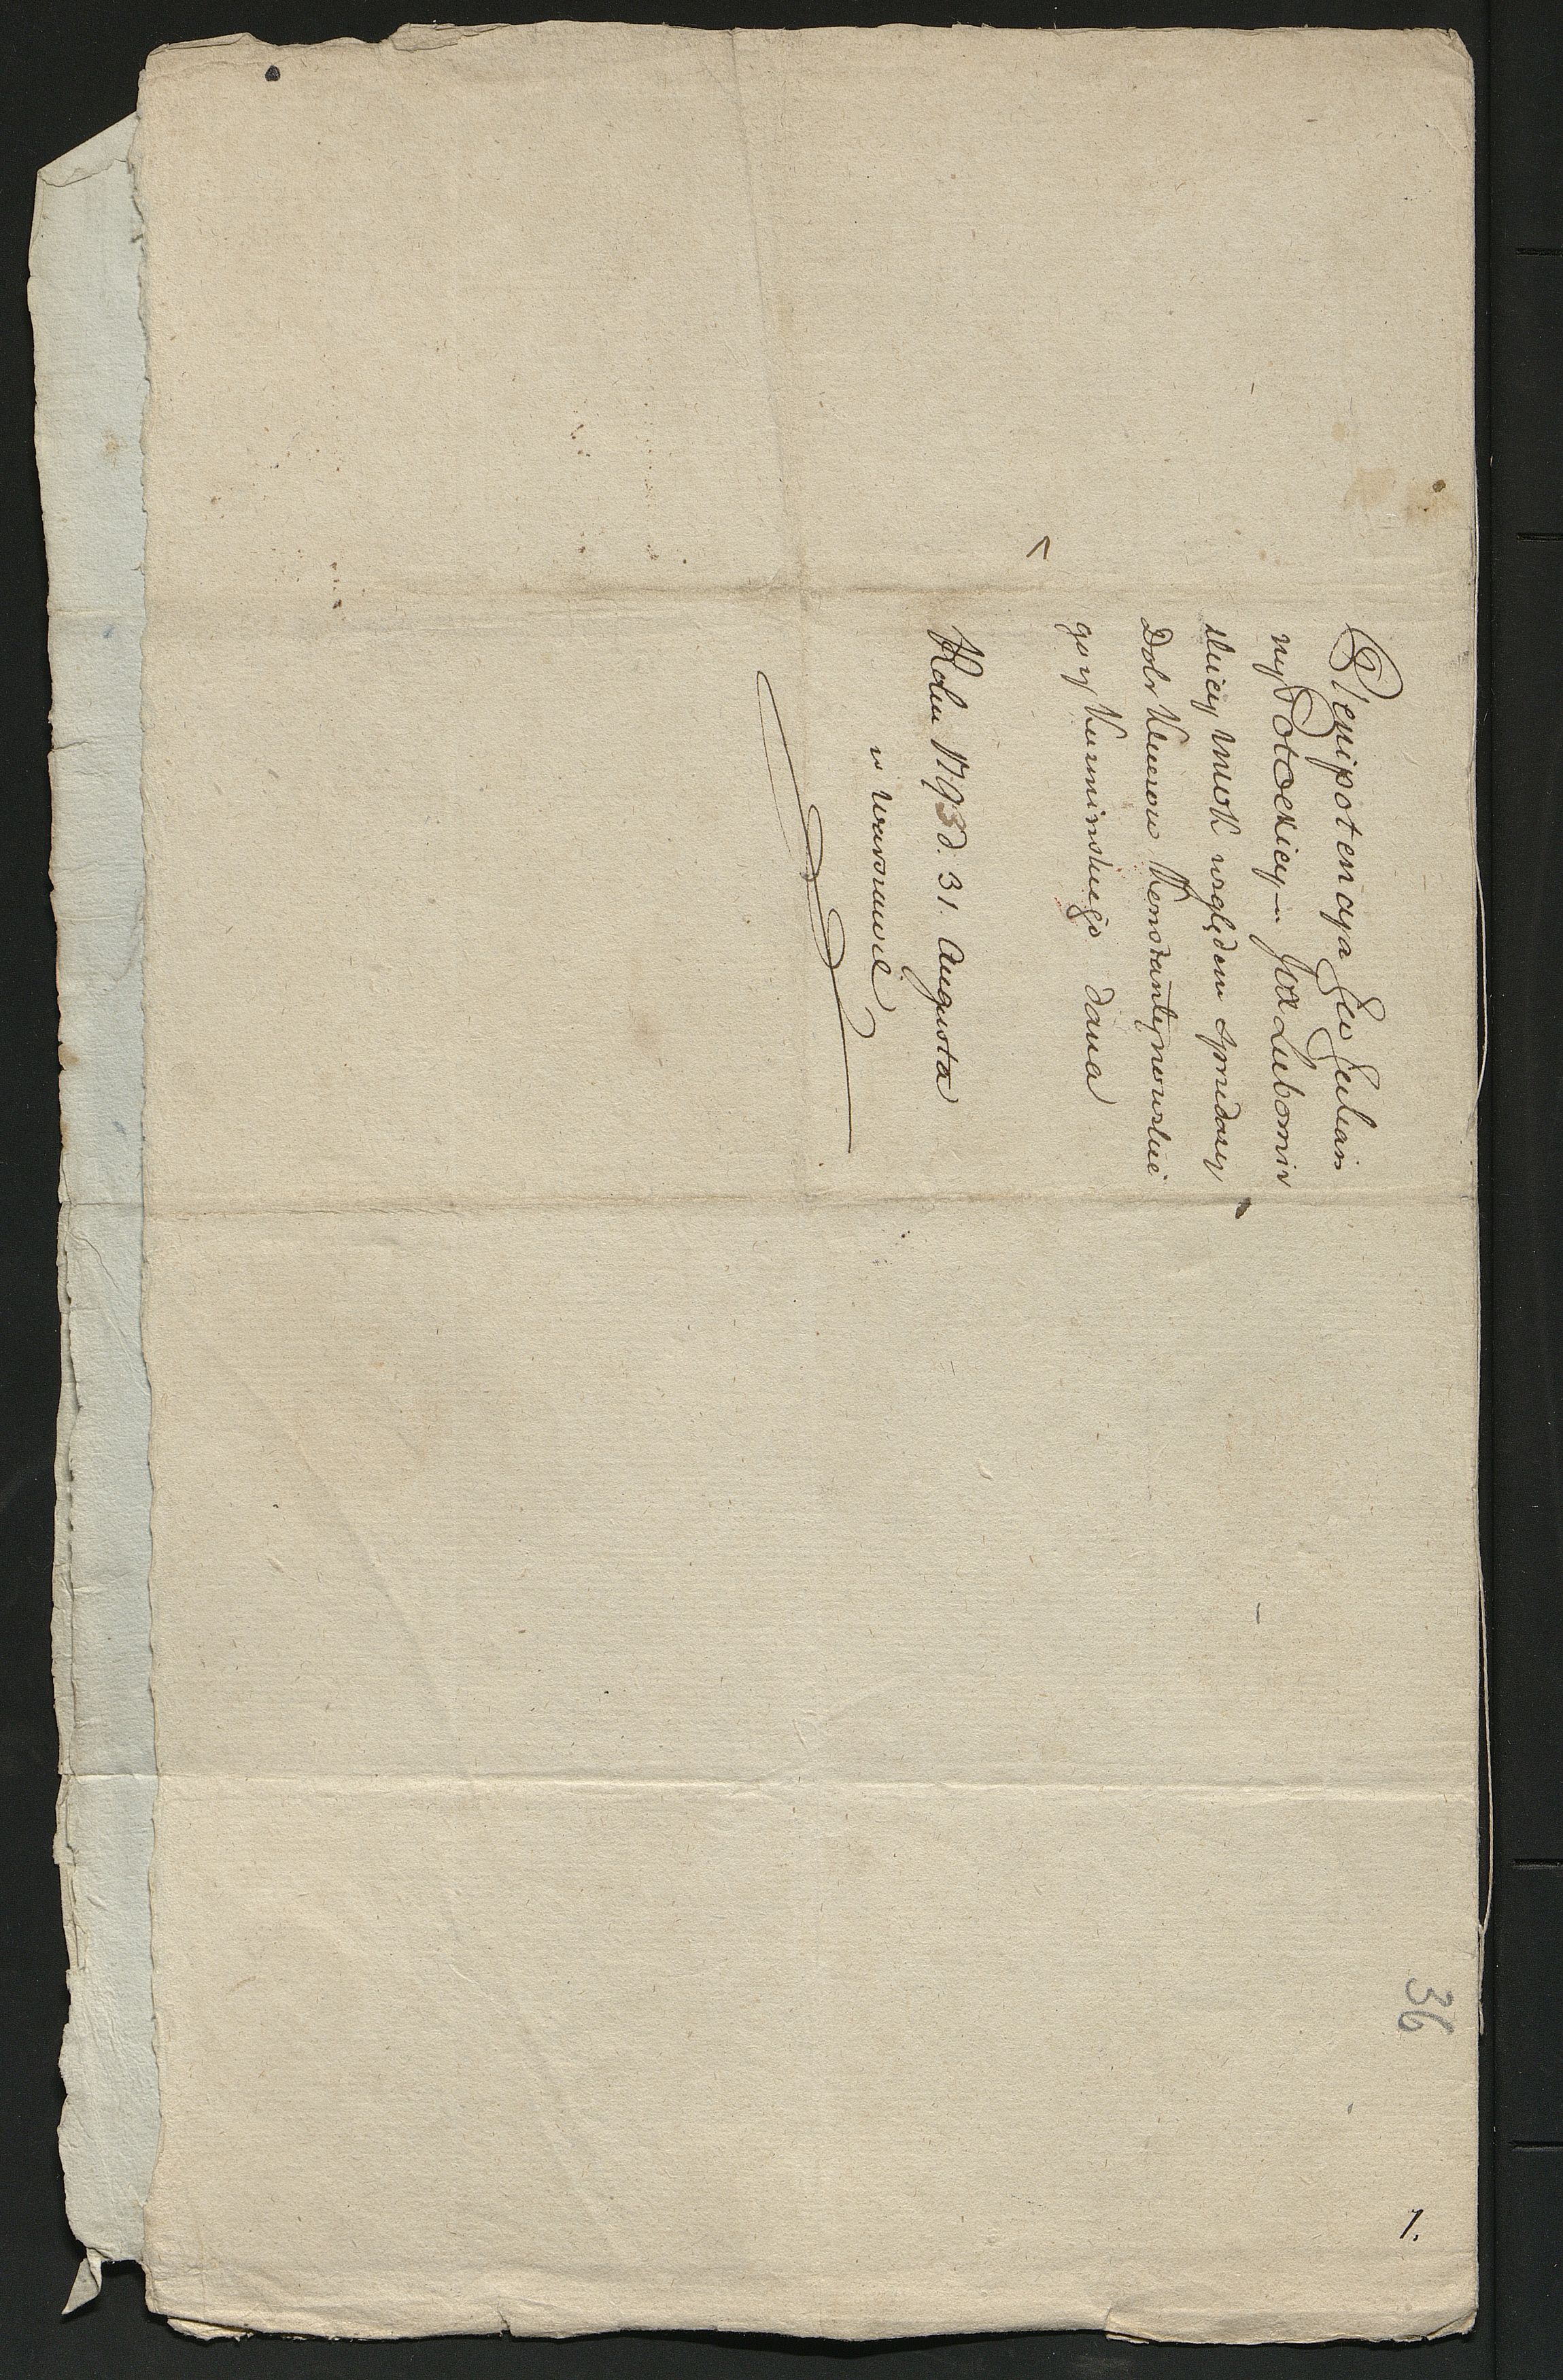 Plenipotencya Ew Julian
ny Potockiey — JOX Lubomir
skiey względem sprzedarzy
Dobr Kluczow Konstantynowskie
go y Kuzminskiego dana
Roku 1793 d. 31. Augusta
w Warszawie
36
1.